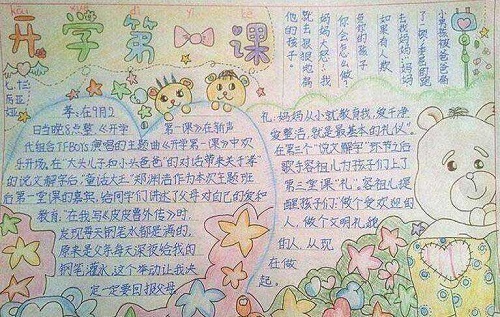 开学第一课
小男孩被爸爸
了一顿,委屈的跑
去找妈妈:妈妈
如果有人欺
负你的孩子
你会怎么做?
妈妈大怒:我
就去狠狠地
他的孩子。
孝:在9月2
日当晚8点整《开学
第一课》在新声
代组合TFBOYS演唱的主题曲《开学第一课》中欢
乐开场,在"大头儿子和小头爸爸"的对话带来关于"孝"
的说文解字后,"童话大王"郑渊洁作为本次主题班
后第一堂课的嘉宾,给同学们讲述了父母对自己的爱和
教育,"在我写《皮皮鲁外传》时,
发现每天钢笔水都是满的,
原来是父亲每天深夜给我的
钢笔灌水,这个举动让我决
定一定要回报父母
礼:妈妈从小就教育我,爱干净
爱整洁,就是最基本的礼仪"。
在第三个"说文解字"环节之后
歌手容祖儿为孩子们上了
第三堂课"礼"。容祖儿提
醒孩子们:做个受欢迎的
人,做个文明礼貌
的人,从现
在做
起。